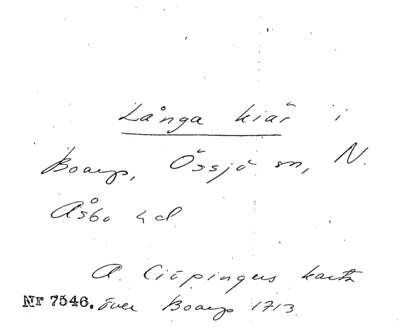 Långa kiär i
Boarp, Össjö sn, N.
Åsbo hd
A. Ciöpingers karta
Nr 7546. över Boarp 1713